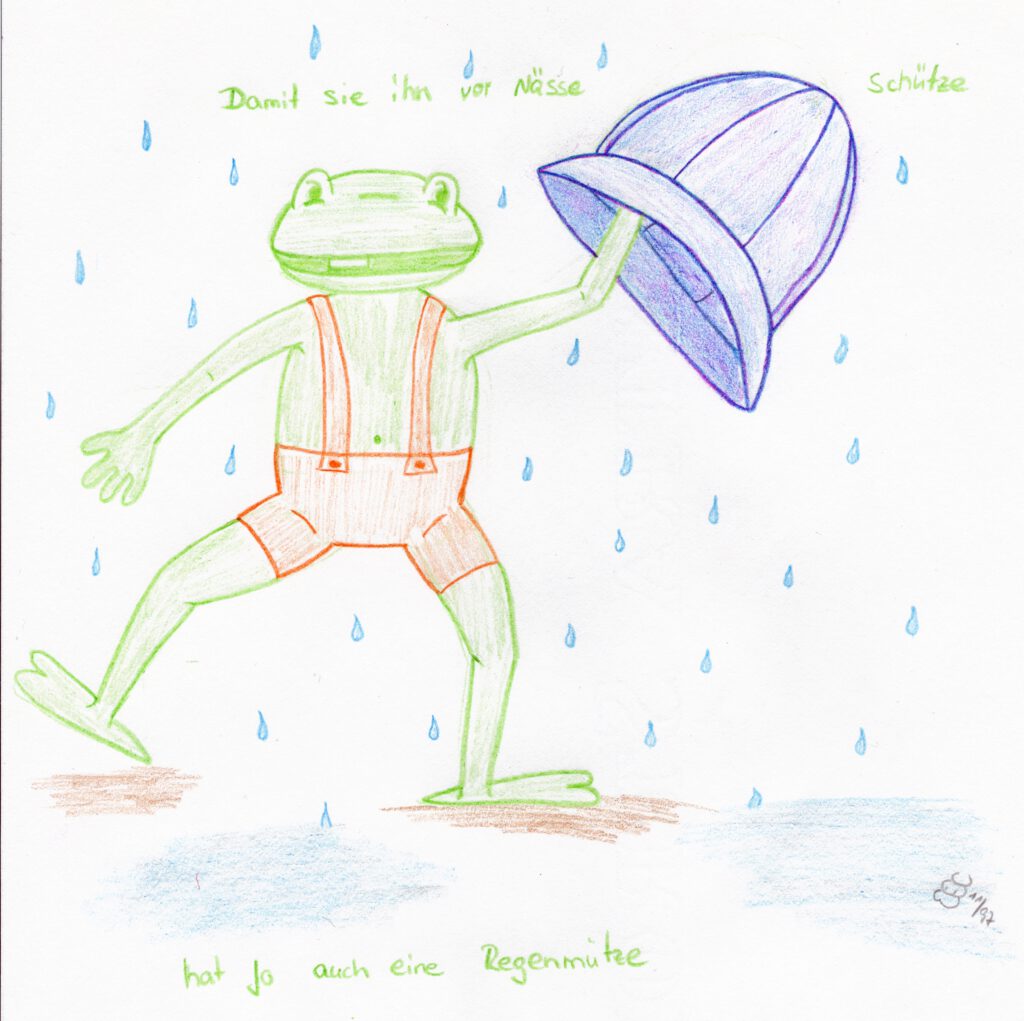 Damit sie ihn vor Nässe Schütze
hat Jo auch eine Regenmütze
11/97